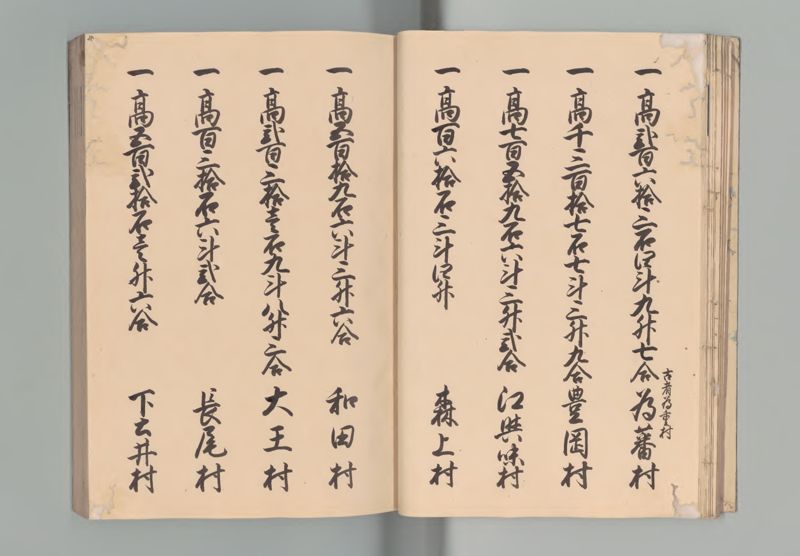 一高弐百六拾三石四斗九升七合 為蕃村
古者為重村
一高千三百拾七石七斗三升九合 豊岡村
一高七百五拾九石六斗三升弐合 江與味村
一高百六拾石三斗四升 森上村
一高五百拾九石六斗三升六合 和田村
一高弐百三拾壱石九斗八升三合 大王村
一高百三拾石六斗弐合 長尾村
一高五百弐拾石壱升六合 下土井村